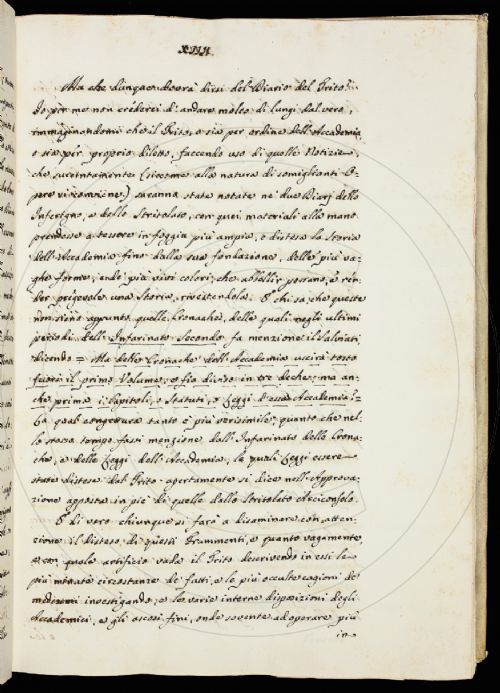 XIII.
Ma che dunque dovrà dirsi del Diario del Trito?
Io per me non crederei di andare molto di lungi dal vero,
immaginandomi che il Trito, o sia per ordine dell'Accademia
o sia per proprio diletto, faccendo uso di quelle Notizie,
che succintamente (siccome alla natura di somiglianti O-
pere si conviene) saranno state notate ne' due Diarj dello
Inferigno, e dello Stritolato, con quei materiali alla mano
prendesse a tessere in foggia più ampia, e distesa la Storia
dell'Accademia fino dalla sua fondazione, delle più va-
ghe forme, ende' più vivi colori, che abbellir possano, e ren-
der pregevole una Storia, rivestendola. E chi sa, che queste
non sieno appunto quelle Cronache, delle quali negli ultimi
periodi dello Infarinato Secondo fa menzione il Salviati
dicendo = Ma delle Cronache dell'Accademia uscirà tosto
fuora il primo Volume, o fia diviso in tre deche, ma an-
che prima i Capitoli, o Statuti, o Leggi d'essa Accademia =
La qual congettura tanto è più verisimile, quanto che nel-
lo stesso tempo fassi menzione dall'Infarinato delle Crona-
che, e delle Leggi dell'Accademia, le quali Leggi essere
state distese dal Trito apertamente si dice nell'Approva-
zione apposta in piè di quelle dallo Stritolato Arciconsolo.
E di vero chiunque si farà a disaminare con atten-
zione il disteso di questi Frammenti, e quanto vagamente
e con quale artificio vada il Trito descrivendo in essi le
più minute circostanze de' fatti, e le più occulte cagioni de'
medesimi investigando, e le varie interne disposizioni degli
Accademici, e gli ascosi fini, onde sovente ad operare più
in